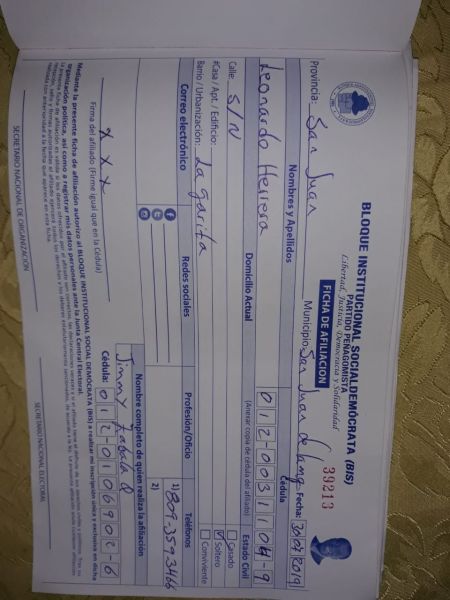 BLOQUE INSTITUCIONAL SOCIALDEMÓCRATA (BIS)
PARTIDO PEÑAGOMISTA
Libertad, Justicia, Democracia y Solidaridad
FICHA DE AFILIACIÓN
39213
Provincia: San Juan Municipio: San Juan de Fecha: 30/07/2019
Nombres y Apellidos Cédula
Leonardo Herrera 012-0031104-9
(Anexar copia de cédula del afiliado)
Domicilio Actual Estado Civil
Calle: S/N
#Casa / Apt. / Edificio:
Barrio / Urbanización: La garita
Casado
Soltero
Conviviente
Correo electrónico Redes sociales Profesión/Oficio Teléfonos
1) 809-3593466
2)
Nombre completo de quien realiza la afiliación
Jimmy Zabala
x x x
Firma del afiliado (Firme igual que en la Cédula)
Cédula: 012-0106902-6
Mediante la presente ficha de afiliación autorizo al BLOQUE INSTITUCIONAL SOCIAL DEMÓCRATA (BIS) a realizar mi inscripción única y exclusiva en dicha
organización política, así como a registrar mis datos personales ante la Junta Central Electoral.
SECRETARIO NACIONAL DE ORGANIZACIÓN SECRETARIO NACIONAL ELECTORAL